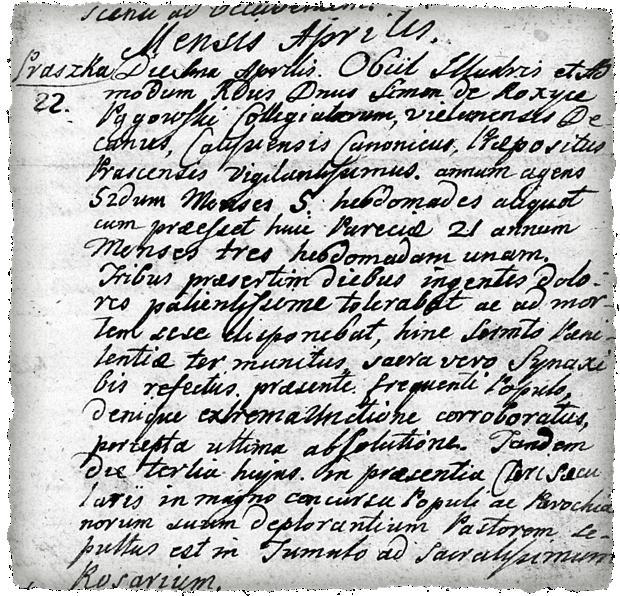 Mensis Aprilis.
Praszka Die 1ma Aprilis. Obiit Illustris et Ad
22. modum Rdus Dnus Simon de Roxyce
Pągowski Collegiatarum, Vielunensis De
canus, Calisiensis Canonicus, Præpositus
Prascensis Vigilantissimus. annum agens
52dum Menses 5 hebdomades aliquot
cum præesset huic Pareciæ 21 annum
Menses tres hebdomadam unam.
Tribus præsertim diebus ingentes dolo-
res patientissime tolerabat ac ad mor-
tem sese disponebat, hinc Sermto Pæni-
tentiæ ter munitus, sacra vero Synaxi
bis refectus. præsente frequenti Populo,
denique extrema Unctione corroboratus,
percepta ultima absolutione. Tandem
die tertia hujas. in præsentia Cleri Sæcu
laris in magno concursu Populi ac Parochia
norum suum deplorantium Pastorem se-
pultus est in Tumulo ad Sacratissimum
Rosarium.